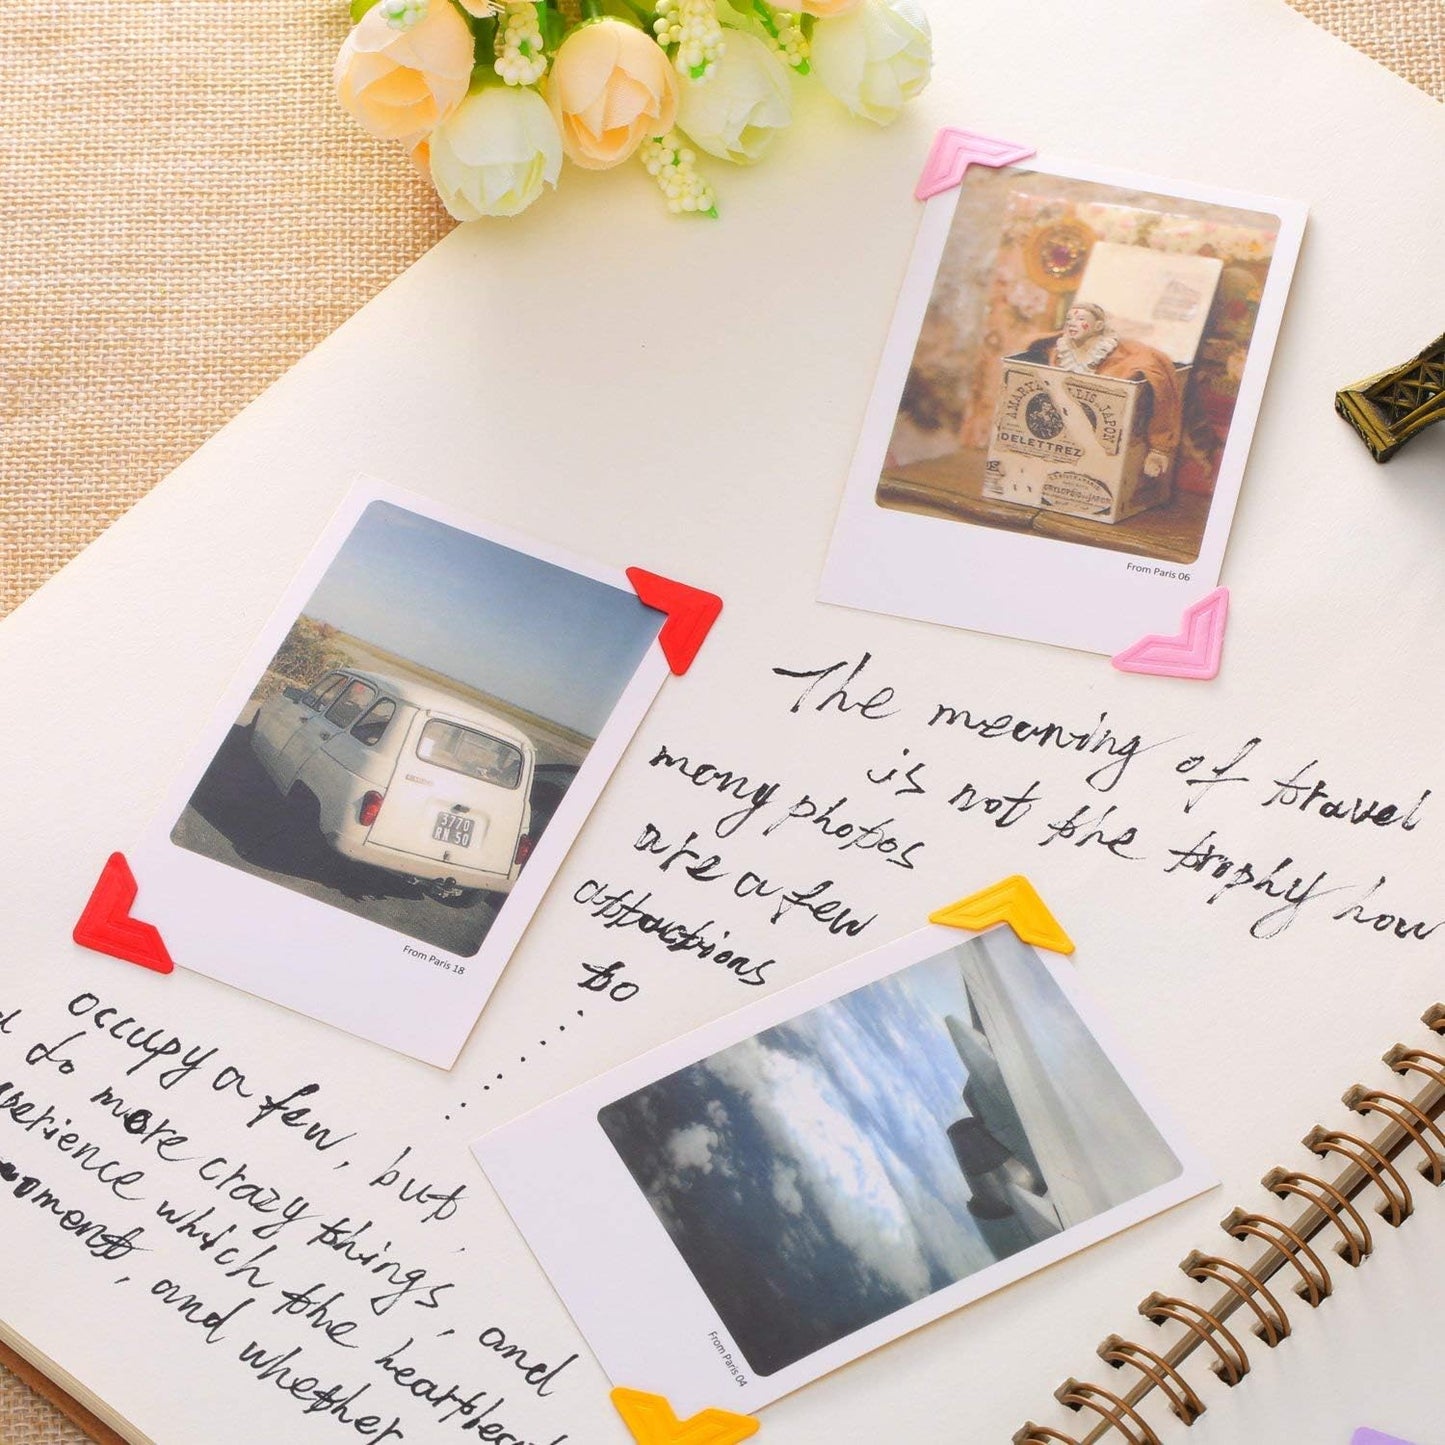 AMARYLLIS du JAPON
DELETTREZ
From Paris 06
3770
RN 50
From Paris 18
The meaning of travel
is not the trophy how
many photos
are a few
attractions
to
......
From Paris 04
occupy a few, but,
do more crazy things, and
experience which the heartbeat
moment, and whether